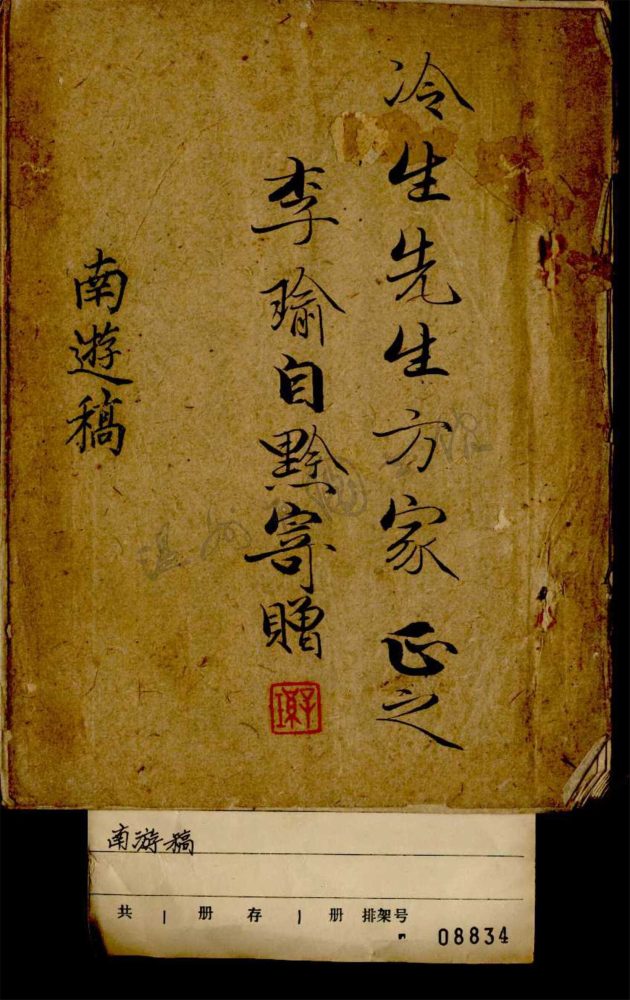 冷生先生方家正之
李瑜自黔寄贈
南遊稿
南游稿
共 1 册 存 1 册 排架号
08834